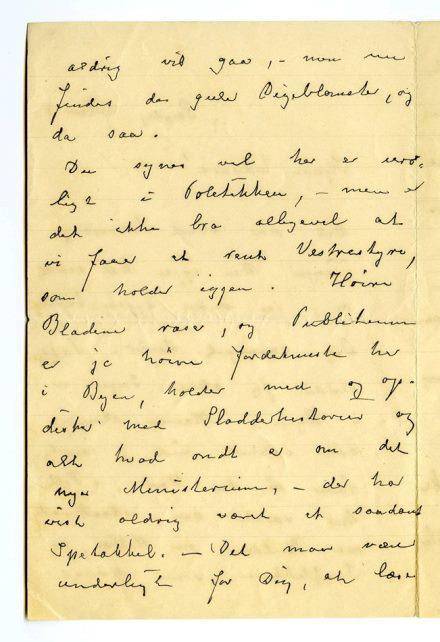 aldrig vil gaa, – men nu
findes das gule Pigeblomster, og
da saa.
Du synes vel her er uro-
ligt i Politikken, – men er
det ikke bra alligevel at
vi faaer et rent Venstrestyre,
som holder iggen. Høire
Bladene raser, og Publikum
er jo høire fordetmeste her
i Byen, holder med og op-
disker med Sladderhistorier og
alt hvad ondt er om det
nye Ministerium, – der har
vist aldrig været et saadant
Spetakkel. – Det maa være
underligt for Dig, at læse